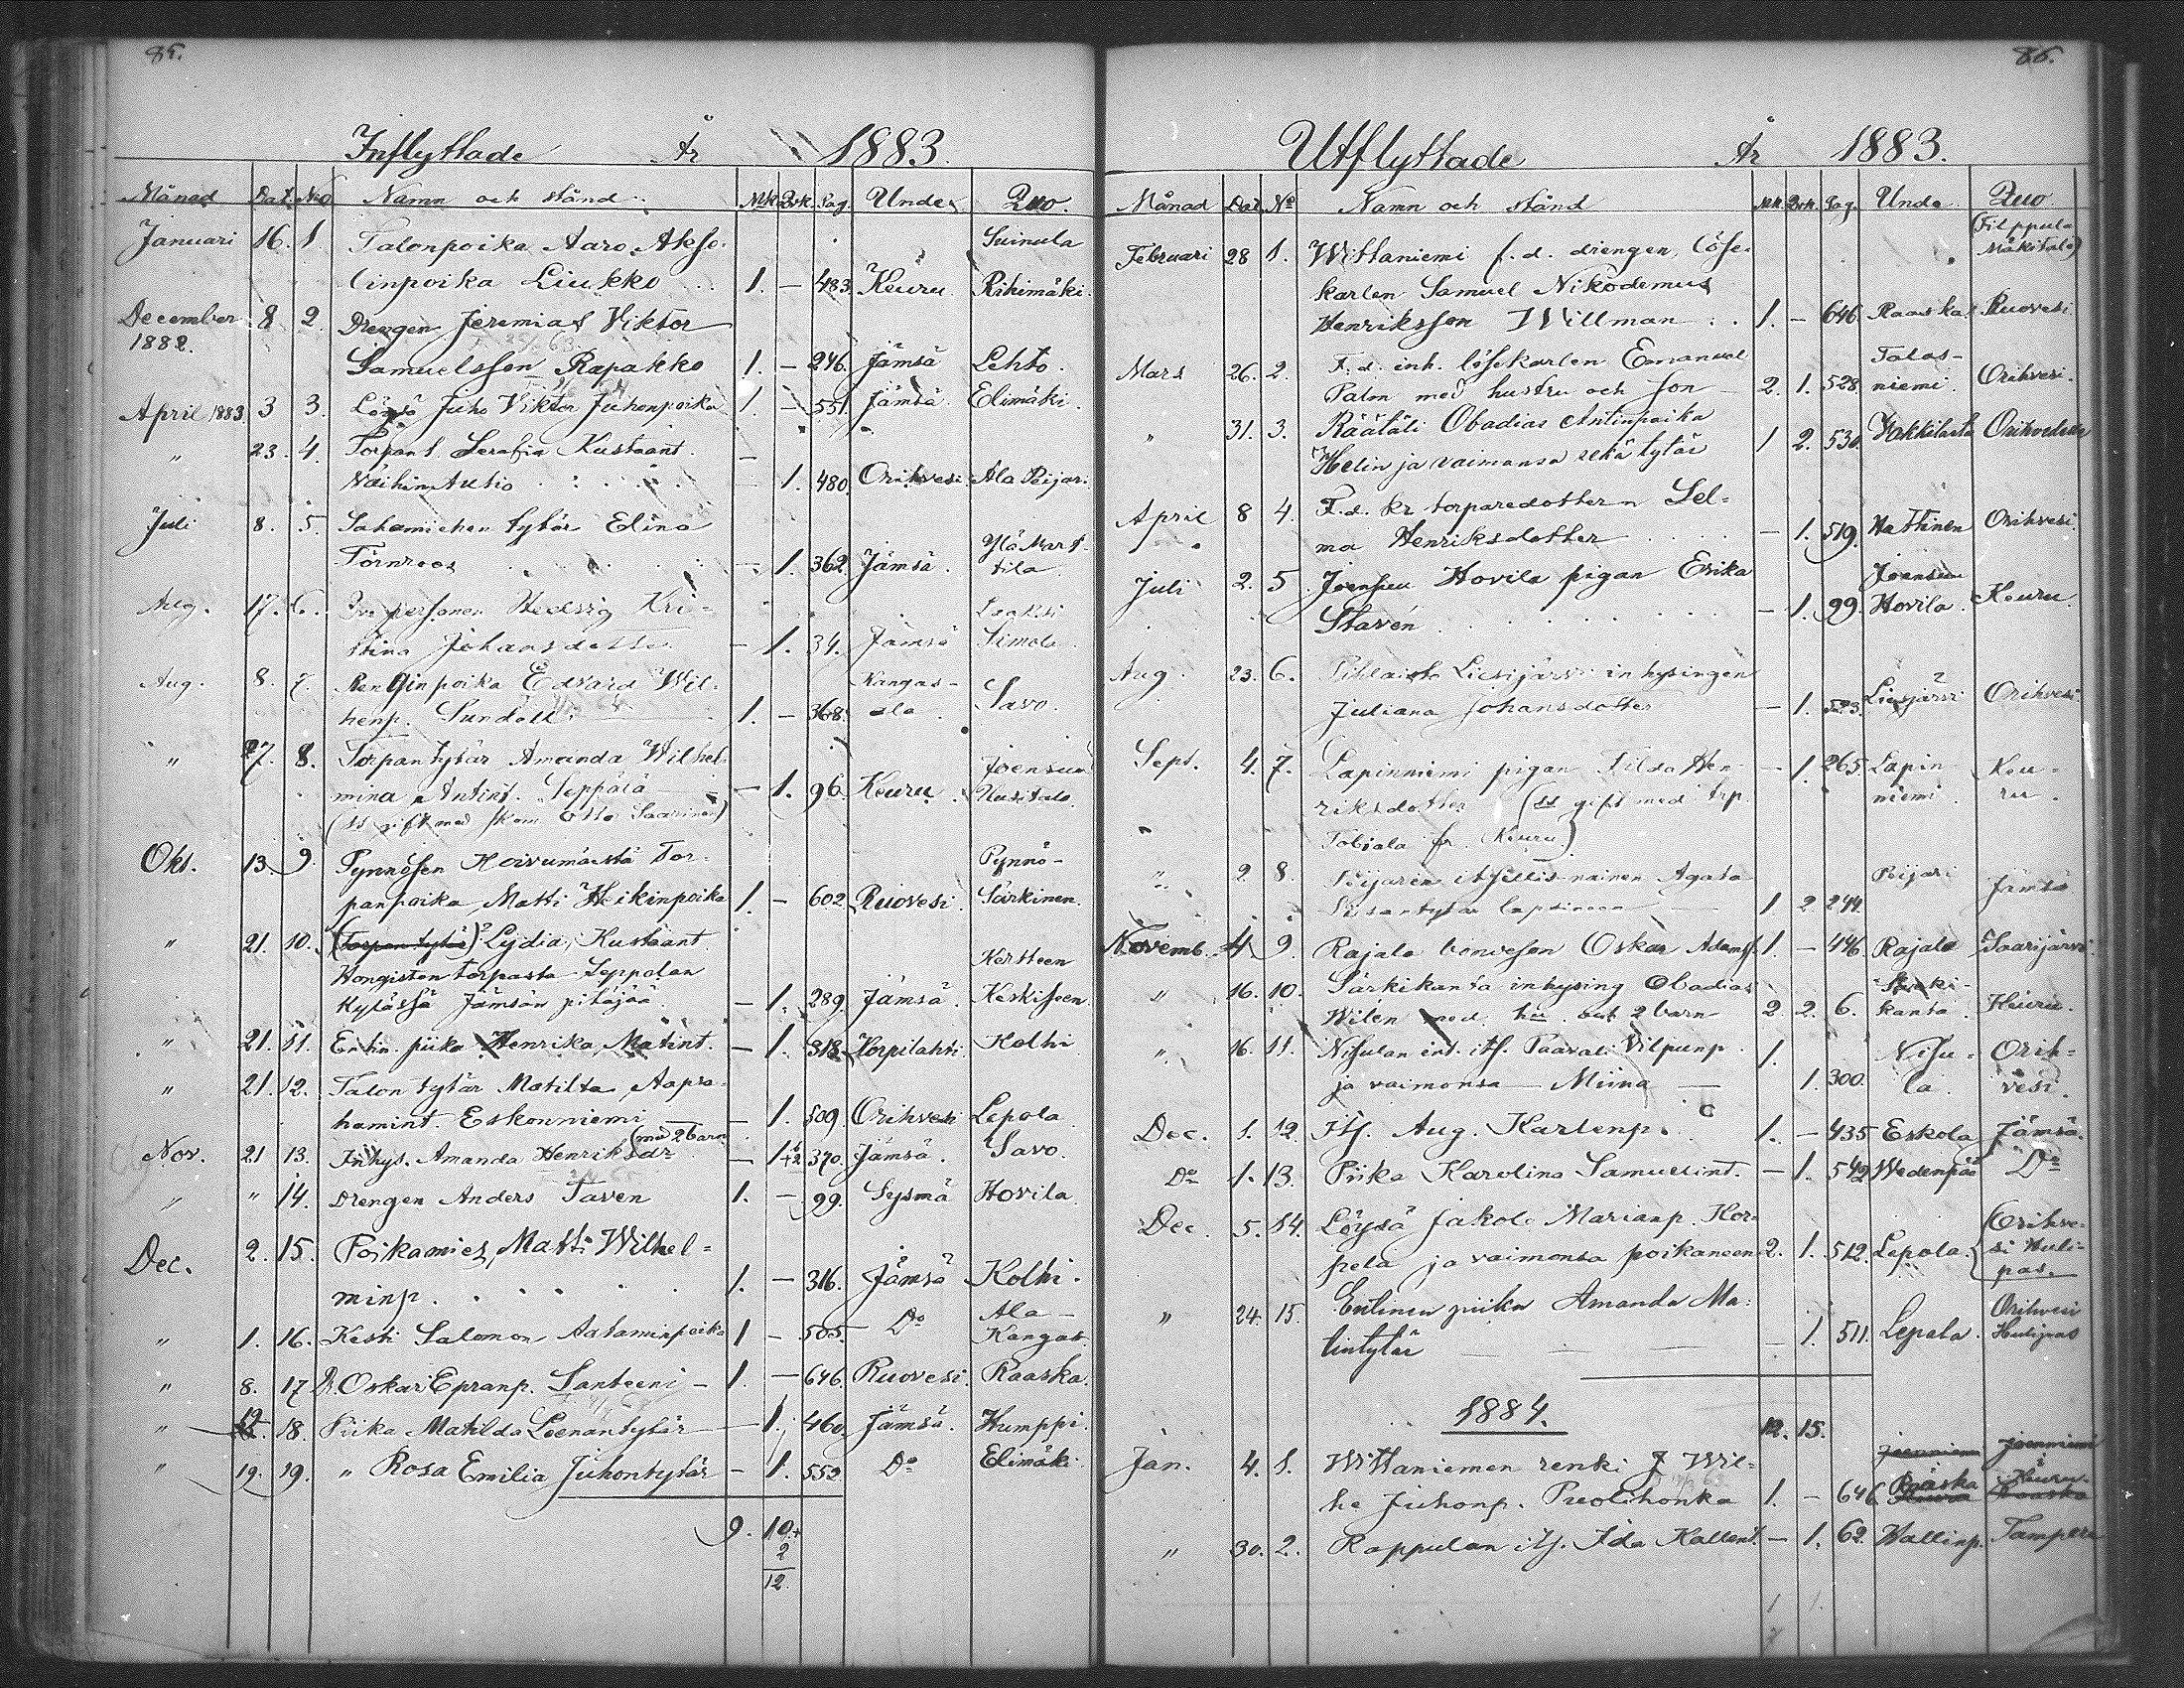 85.
Inflyttade År 1883.
Månad Dat. No Namn och stånd. Mk. Qvk. Pag. Unde Quo.
Januari 16. 1. Talonpoika Aaro Akse- Suinula
linpoika Liukko 1. — 483 Keuru. Rihimäki.
December 8 2. Drengen Jeremias Viktor
1882. Samuelsson Rapakko 1. — 246. Jämsä Lehto.
April 1883. 3 3. Löysä Juho Viktor Juhonpoika 1. — 551. Jämsä. Elimäki.
" 23. 4. Torpant. Serafia Kustaant.
Näihin Autio — 1. 480. Orihvesi Ala Peijari.
Juli 8. 5. Sahamiehen tytär Elina Ylä Mart-
Törnroos — 1. 362. Jämsä. tila
Aug. 17. 6. Qv. personen Hedvig Kri-
stina Johansdotter — 1. 34. Jämsä Simola
Aug. 8. 7. Rengin poika Edvard Wil- Kangas-
henp. Sundell. 1. — 368. ala. Savo.
" 27. 8. Torpan tytär Amanda Wilhel- Joensuu
mina Antint. Seppälä — 1. 96. Keuru. Uusitalo.
(ss gift med skom. Otto Saarinen)
Okt. 13. 9. Pynnösen Koivumäestä Tor- Pynnö-
panpoika, Matti Heikinpoika 1. — 602. Ruovesi. Särkinen.
" 21. 10. (Torpan tytär) Lydia, Kustaant. Kertteen
Hongiston torpasta Seppolan
kylässä Jämsän pitäjää — 1. 289. Jämsä. Keskiseen.
" 21. 11. Entin. piika Henrika Matint. — 1. 313. Korpilahti Kolhi
" 21. 12. Talon tytär Matilta Aapra-
hamint. Eskonniemi — 1. 509. Orihvesi Lepola
Nov. 21 13. Inhys. Amanda Henriksdr (med 2 barn) — 1+2 370. Jämsä. Savo.
" " 14. Drengen Anders Taven 1. — 99. Sysmä Hovila.
Dec. 2. 15. Poikamies, Matti Wilhel-
minp. 1. — 316. Jämsä Kolhi.
" 1. 16. Kesti Salomon Aataminpoika 1 — 505. Do Ala-Kangas.
" 8. 17 D. Oskari Epranp. Santeeni — 1. — 646. Ruovesi. Raaska.
" 19. 18. Piika Matilda Leenantytär — 1. 460. Jämsä. Humppi.
" 19. 19. " Rosa Emilia Juhontytär — 1. 552. Do Elimäki.
9. 10+
2
12.
86.
Utflyttade År 1883.
Månad Dat. No Namn och stånd Mk. Qvk. Pag. Unde Quo.
(Filppula
Mäkitalo)
Februari 28 1. Wittaniemi f.d. drengen, löse-
karlen Samuel Nikodemus
Henriksson Willman 1. — 646. Raaska. Ruovesi.
Mars 26. 2. F.d. inh. lösekarlen Emanuel Talas-
Palm med hustru och son — 2. 1. 528. niemi. Orihvesi.
" 31. 3. Räätäli Obadias Antinpoika
Helin ja vaimonsa sekä tytär 1 2. 530. Orihvedelle
April 8 4. F.d. kr torparedottern Sel-
ma Henriksdotter — 1. 519. Hattinen Orihvesi.
Juli 2. 5. Joensuu Hovila pigan Erika Joensuu
Staven — 1. 99. Hovila. Keuru.
Aug. 23. 6. Pihlaisto Liesijärvi inhysingen
Juliana Johansdotter — 1. 523. Liesijärvi Orihvesi.
Sept. 4. 7. Lapinniemi pigan Tilda Hen- — 1. 265. Lapin- Keu-
riksdotter (ss gift med trp. niemi. ru.
Tobiala fr. Keuru.)
" 2 8. Peijarin itsellis-nainen Agata Peijari
Susantytär lapsineen 1 2 244. Jämsä
Novemb. 4 9. Rajala bondeson Oskar Adamss. 1. — 446. Rajala Saarijärvi.
" 16. 10. Särkikanta inhysing Obadias Särki-
Wilén med hu. och 2 barn 2. 2. 6. kanta Keuru.
" 16. 11. Nisulan ent. its. Paavali Vilpunp. 1. Nisu- Orih-
ja vaimonsa — Miina — 1. 300. la. vesi.
Dec. 1. 12. Its. Aug. Karlenp. 1. — 435 Eskola Jämsä.
Do 1. 13. Piika Karolina Samuelint. — 1. 542 Wedenpää Do
Dec. 5. 14. Löysä Jakob Marianp. Kor- (Orihve-
pela ja vaimonsa poikaneen 2. 1. 512. Lepola. si Huli-
pas.
" 24. 15. Entinen piika Amanda Ma- Orihvesi
tintytär — 1. 511. Lepola. Hulipas
12. 15.
1884.
Jan. 4. 1. Wittaniemen renki J Wil- Joenniemi Joenniemi
he Juhonp. Puolihonka 1. — 646. Raaska Keuru.
" 30. 2. Rappulan its. Ida Kallent. — 1. 62. Kallinp. Tampere